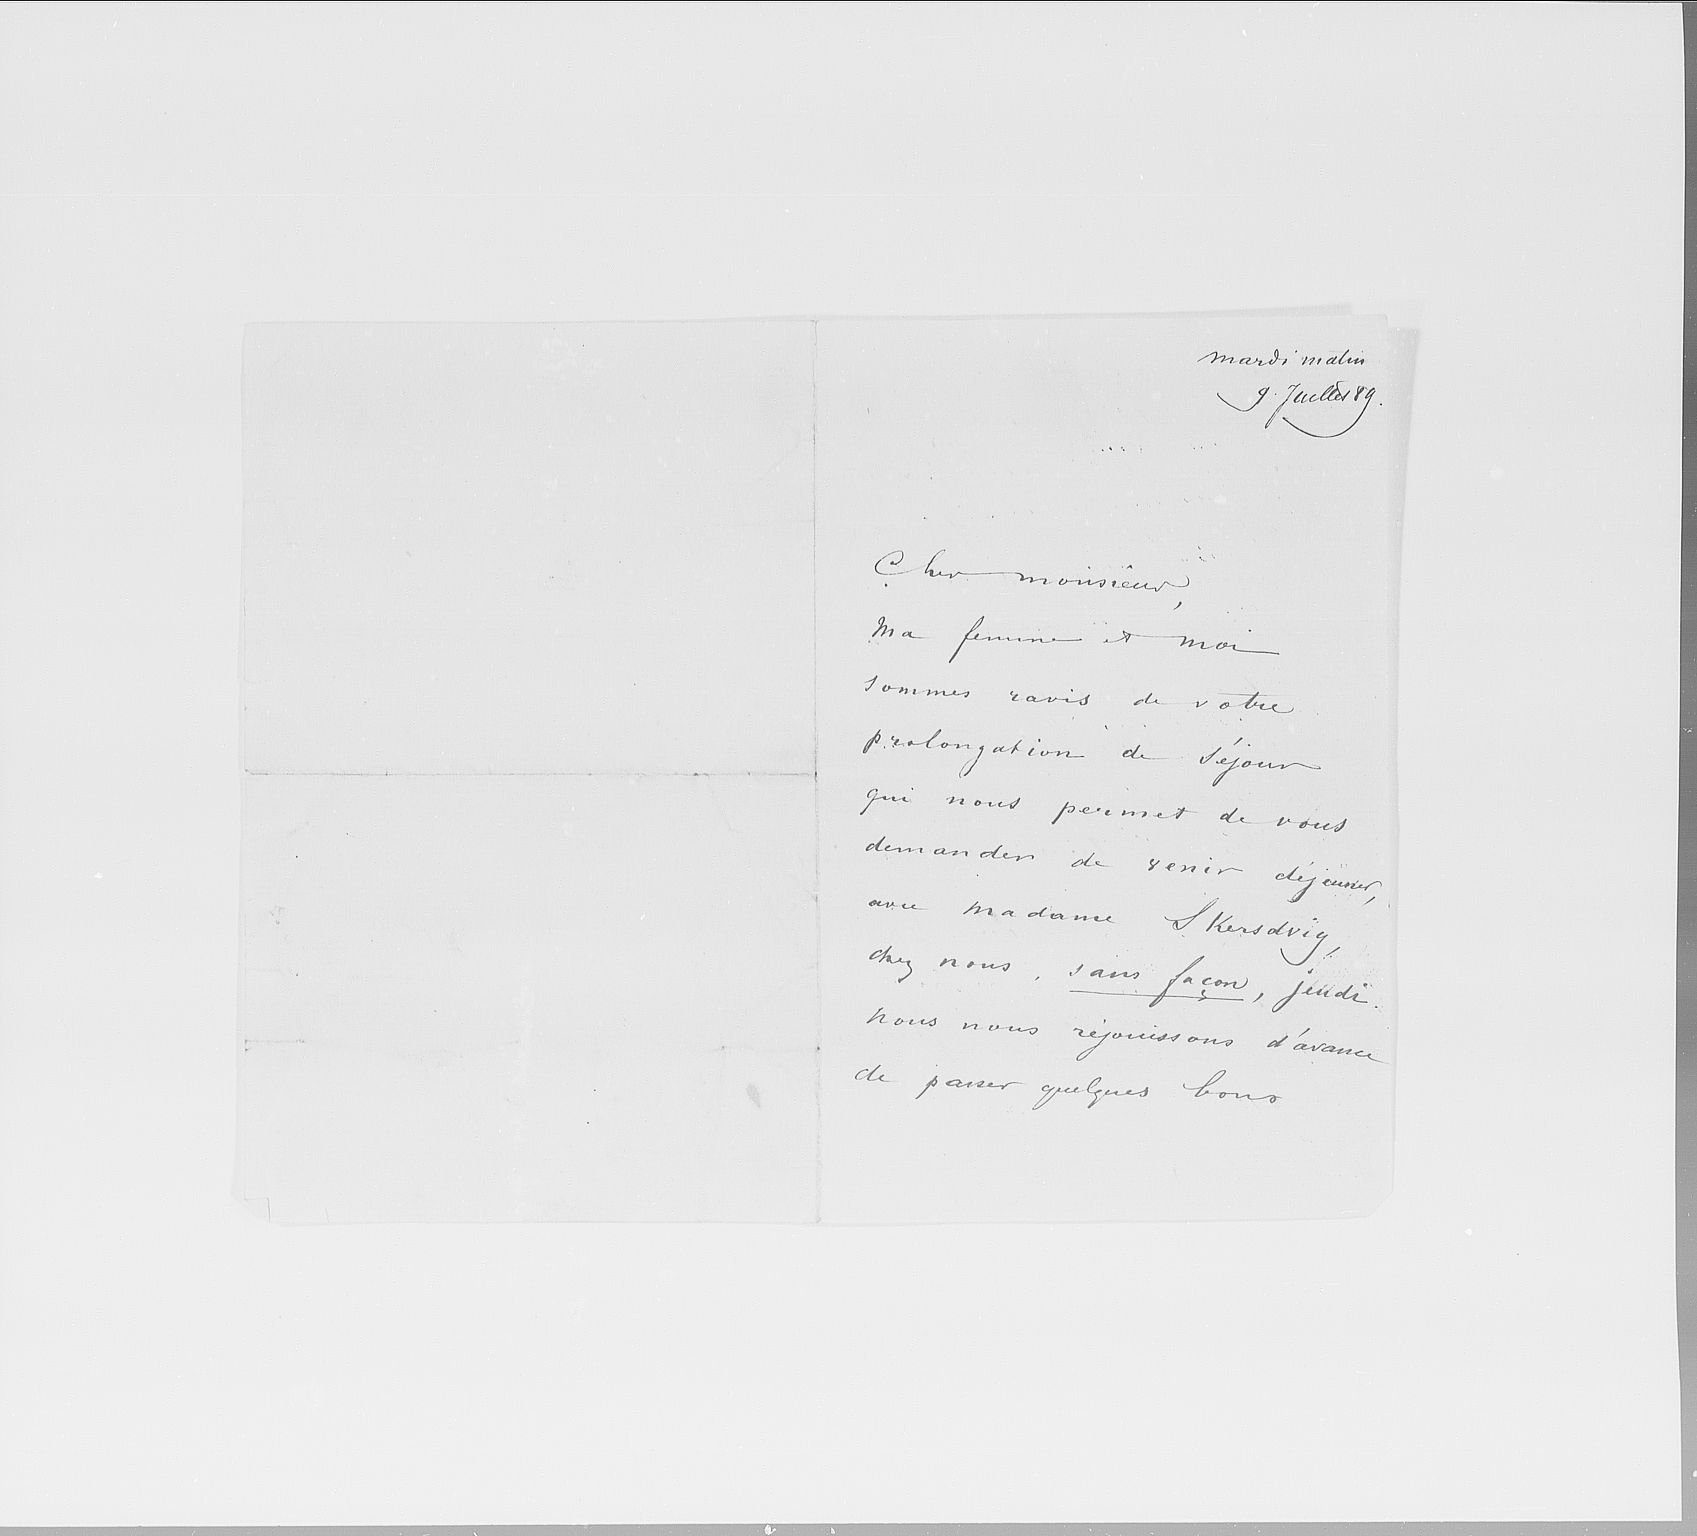 mardi matin
9. Juillet 89.
Cher monsieur,
Ma femme et moi
sommes ravis de votre
prolongation de séjour
qui nous permet de vous
demander de venir déjeuner,
avec Madame Skersdvig,
chez nous, sans façon, jeudi.
Nous nous réjouissons d'avance
de passer quelques bons